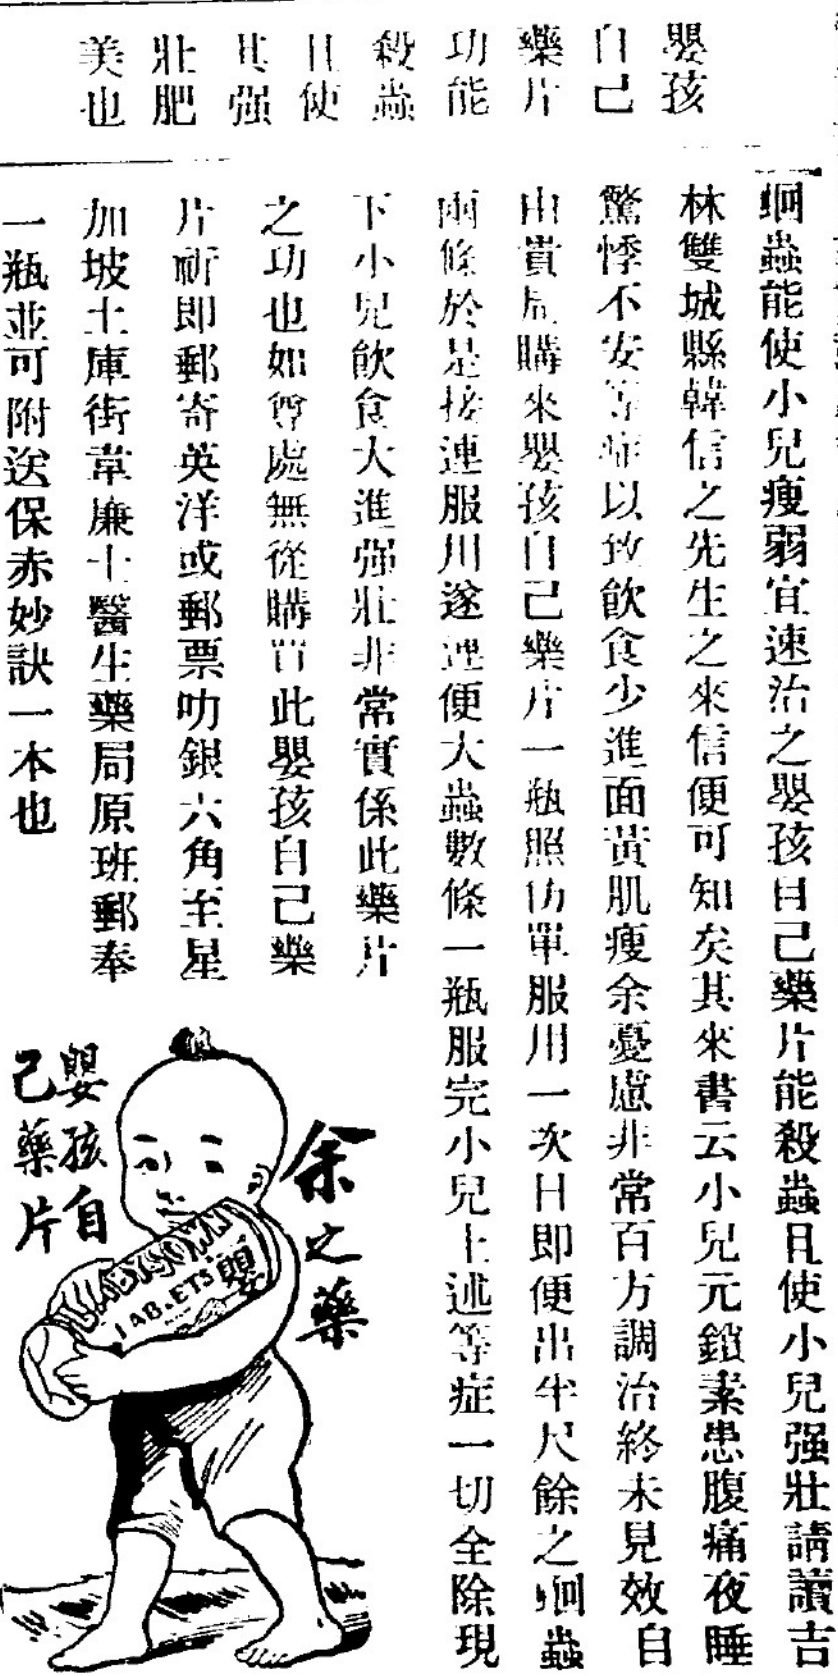 嬰孩
自己
藥片
功能
殺蟲
且使
其强
壯肥
美也
蛔蟲能使小兒瘦弱宜速治之嬰孩自己藥片能殺蟲且使小兒强壯請讀吉
林雙城縣韓信之先生之來信便可知矣其來書云小兒元鎖素患腹痛夜睡
驚悸不安等症以致飲食少進面黃肌瘦余憂慮非常百方調治終未見效自
由貴局購來嬰孩自己藥片一瓶照仿單服用一次日即便出半尺餘之蛔蟲
兩條於是接連服用遂連便大蟲數條一瓶服完小兒上述等症一切全除現
下小兒飲食大進强壯非常實係此藥片
之功也如尊處無從購買此嬰孩自己藥
片祈即郵寄英洋或郵票叻銀六角至星
加坡土庫街韋廉士醫生藥局原班郵奉
一瓶並可附送保赤妙訣一本也
余之藥
嬰孩自
己藥片
BABY'S OWN
TABLETS
嬰